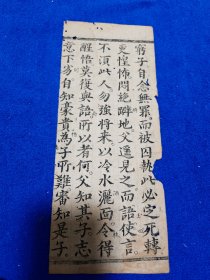 窮子自念無罪而被囚執此必定死轉
更惶怖悶絶躃地父遥見之而語使言
不須此人勿強将来以冷水灑面令得
醒悟莫復與語所以者何父知其子志
意下劣自知豪貴為子所難審知是子